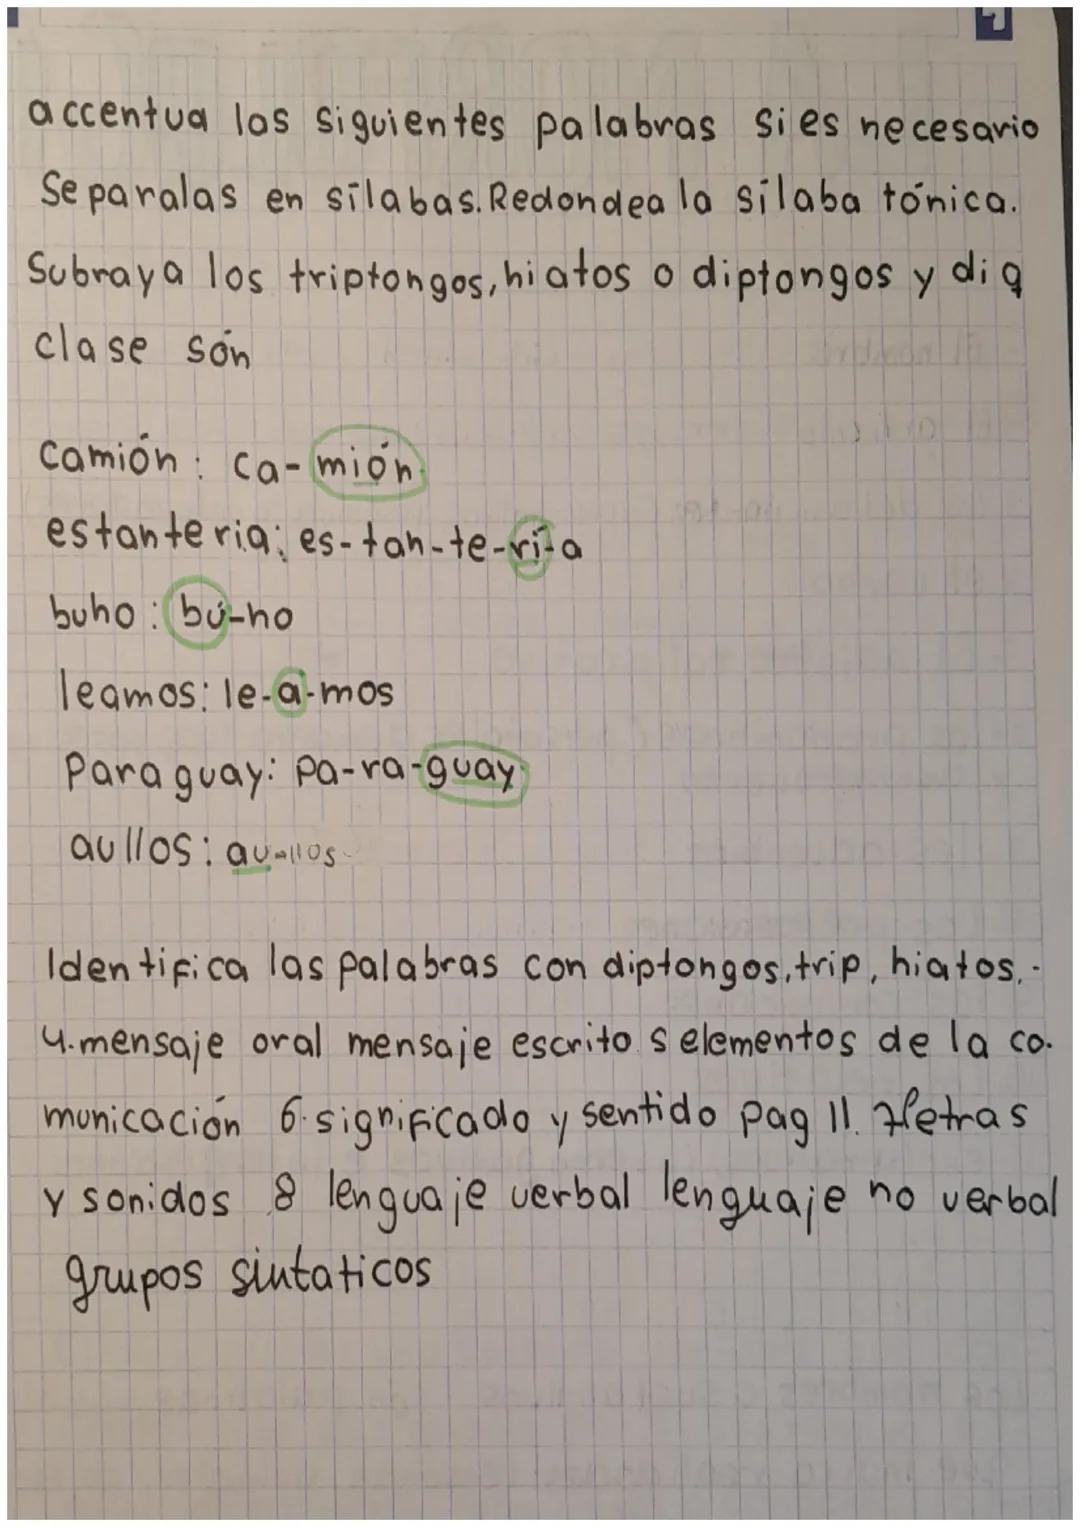 accentua las siguientes palabras si es necesario
Separalas en sílabas. Redondea la sílaba tónica.
Subraya los triptongos, hiatos o diptongos y di q
clase són
camión: ca-mión
estanteria: es-tan-te-rí-a
buho: bú-ho
leamos: le-a-mos
Paraguay: Pa-ra-guay
aullos: au-llos
Identifica las palabras con diptongos, trip, hiatos.
4. mensaje oral mensaje escrito 5 elementos de la co-
municación 6. significado y sentido pag 11. 7 letras
y sonidos 8 lenguaje verbal lenguaje no verbal
grupos sintaticos